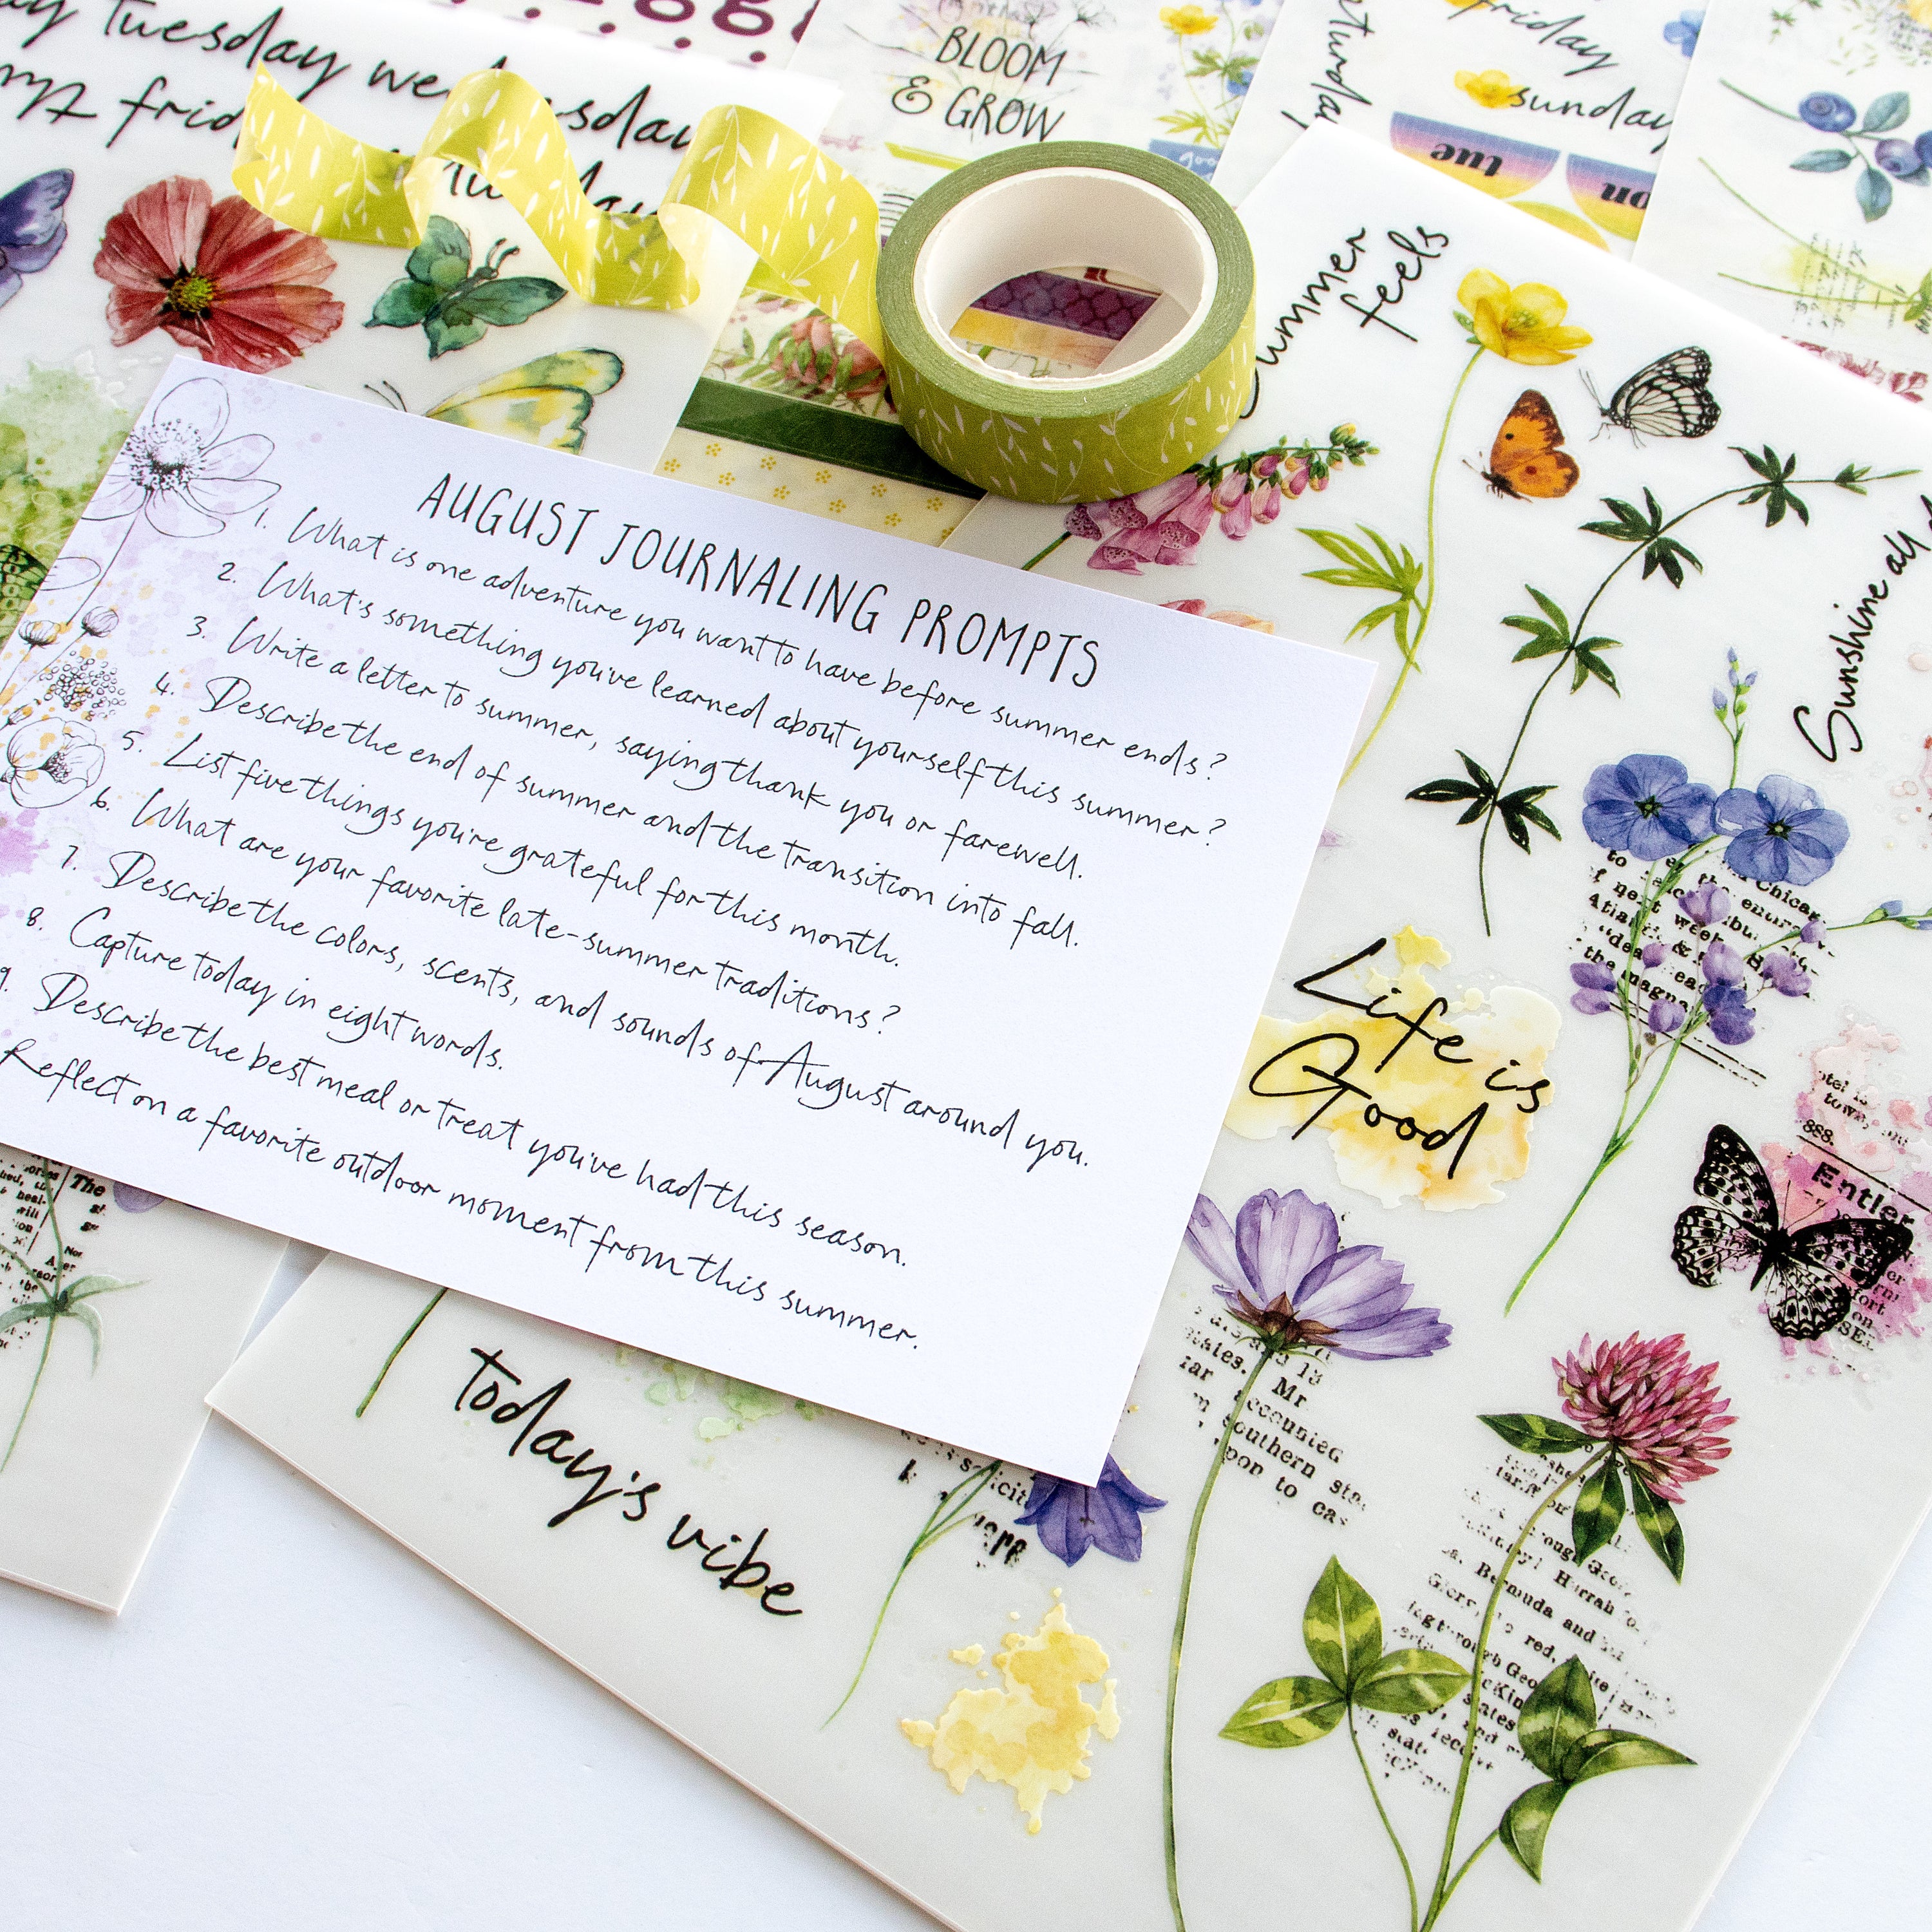 Tuesday wednesday
BLOOM
& GROW
saturday
friday
sunday
tue
summer
feels
Sunshine all
AUGUST JOURNALING PROMPTS
1. What is one adventure you want to have before summer ends?
2. What's something you've learned about yourself this summer?
3. Write a letter to summer, saying thank you or farewell.
4. Describe the end of summer and the transition into fall.
5. List five things you're grateful for this month.
6. What are your favorite late-summer traditions?
7. Describe the colors, scents, and sounds of August around you.
8. Capture today in eight words.
9. Describe the best meal or treat you've had this season.
Reflect on a favorite outdoor moment from this summer.
Life is
Good
Entler
today's vibe
Mr
accounted
southern
upon to
Bermuda and
red,